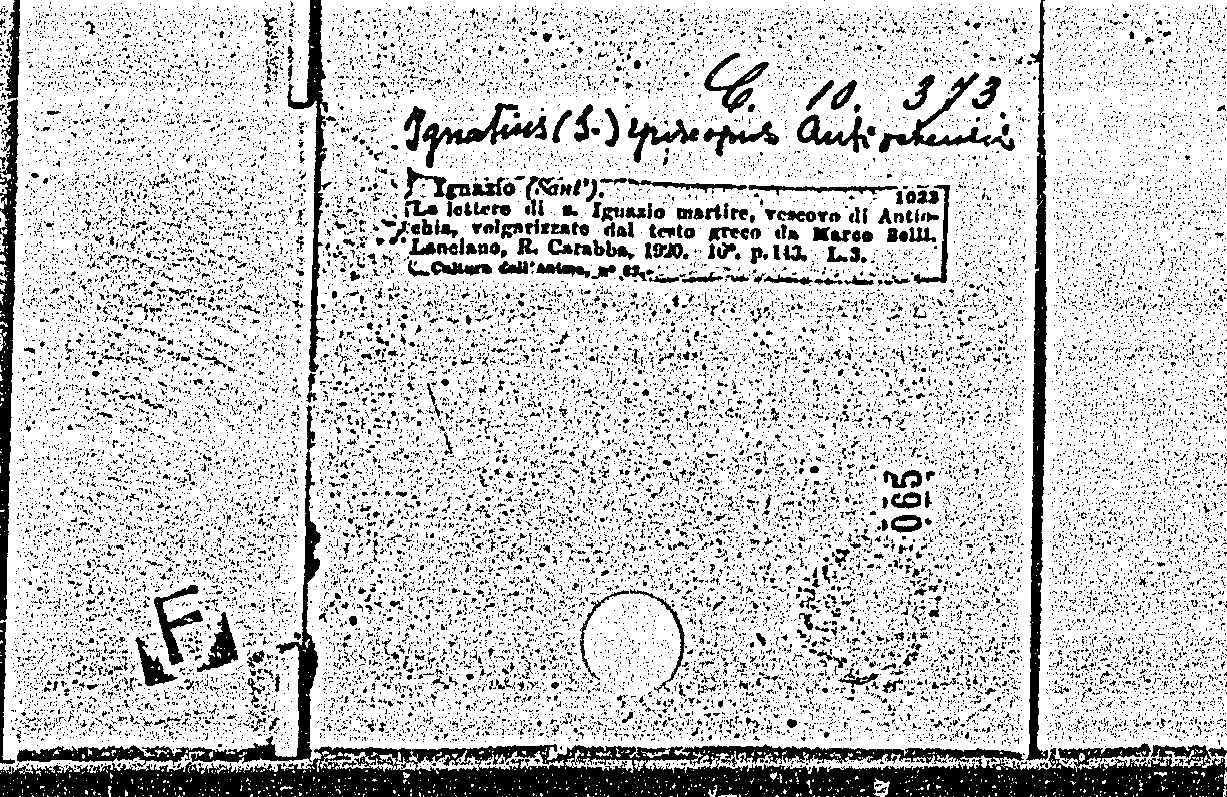 C. 10. 373
Ignatius (S.) episcopus Antiochensis
Ignazio (Sant').
1023
Le lettere di s. Ignazio martire, vescovo di Antio-
chia, volgarizzate dal testo greco da Marco Belli.
Lanciano, R. Carabba, 1920. 16°. p. 143. L. 3.
Cultura dell'anima, n°
065
F